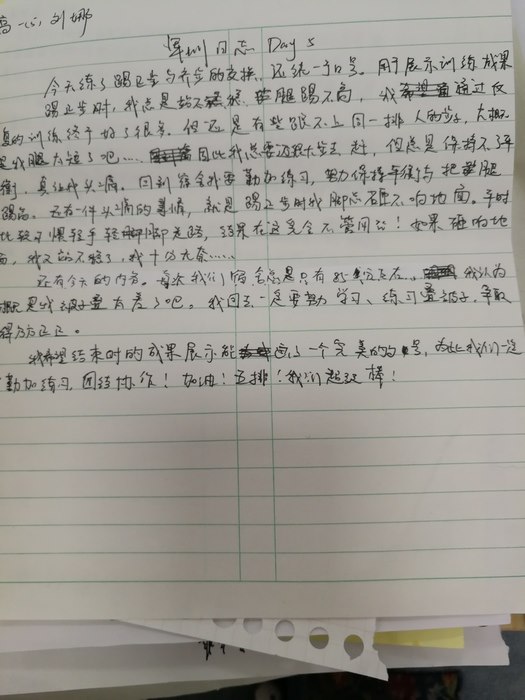 高一(5) 刘娜
军训日志 Day 5
今天练了踢正步与齐步的交换，还统一了口号。用于展示训练成果
踢正步时，我总是 腿踢不高，我 通过反
复的训练终于好了很多。但还是有些跟不上同一排人的步子，大概
是我腿太短了吧…… 因此我总要迈很大步去赶，但总是保持不了平
衡，真让我头痛。回到宿舍我要勤加练习，努力保持平衡与把腿
踢高。还有一件头痛的事情，就是踢正步时我脚总砸不响地面。平时
比较习惯轻手轻脚走路，结果在这完全不管用公！如果砸响地
面，我又站不稳了，我十分无奈……
还有今天的内务。每次我们宿舍总是只有 我认为
概是我被子叠太差了吧。我回去一定要努 学习、练习叠被子，争取
得方方正正。
我希望结束时的成果展示能画了一个完美的句号，为此我们一定
勤加练习，团结协作！加油！五排！我们超级棒！